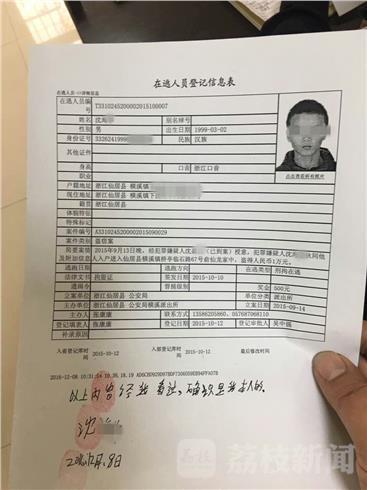 在逃人员登记信息表
在逃人员->>详细信息
在逃人员编号 T3310245200002015100007
姓名 沈海 别名绰号
性别 男 出生日期 1999-03-02
身份证号 33262419990 民族 汉族
其他证件
身高 口音 浙江口音
职业 点击查看所有照片
户籍地址 浙江仙居县 横溪镇
现住地址 浙江仙居县 横溪镇下
籍贯 浙江仙居县
体貌特征
特殊标记
案件编号 A3310245200002015090029
案件类别 盗窃案
简要案情及附加信息 2015年9月13日晚，经犯罪嫌疑人沈 （已到案）授意，犯罪嫌疑人沈海 伙同他人入户进入仙居县横溪镇桥亭临石路67号俞仙龙家中，盗得人民币1万元。
逃跑日期 逃跑方向 在逃类型 刑拘在逃
法律文书 拘留证 签发日期 2015-10-10
通缉令 督捕级别 奖金 500元
立案单位 浙江仙居县 公安局 单位分类 派出所
主办单位 浙江仙居县 公安局横溪派出所 立案日期 2015-09-14
主办人 张康康 联系方式 13586205860、057687068110
登记填表人 张康康 登记日期 2015-10-12 登记审批人 吴中强
补录原因
入省登记库时间 2015-10-12 入部登记库时间 2015-10-12 最后修改时间
2016-12-08 10:31:14
以上内容经我看过，确认是我本人的。
沈
2016.12月.8日
荔枝新闻